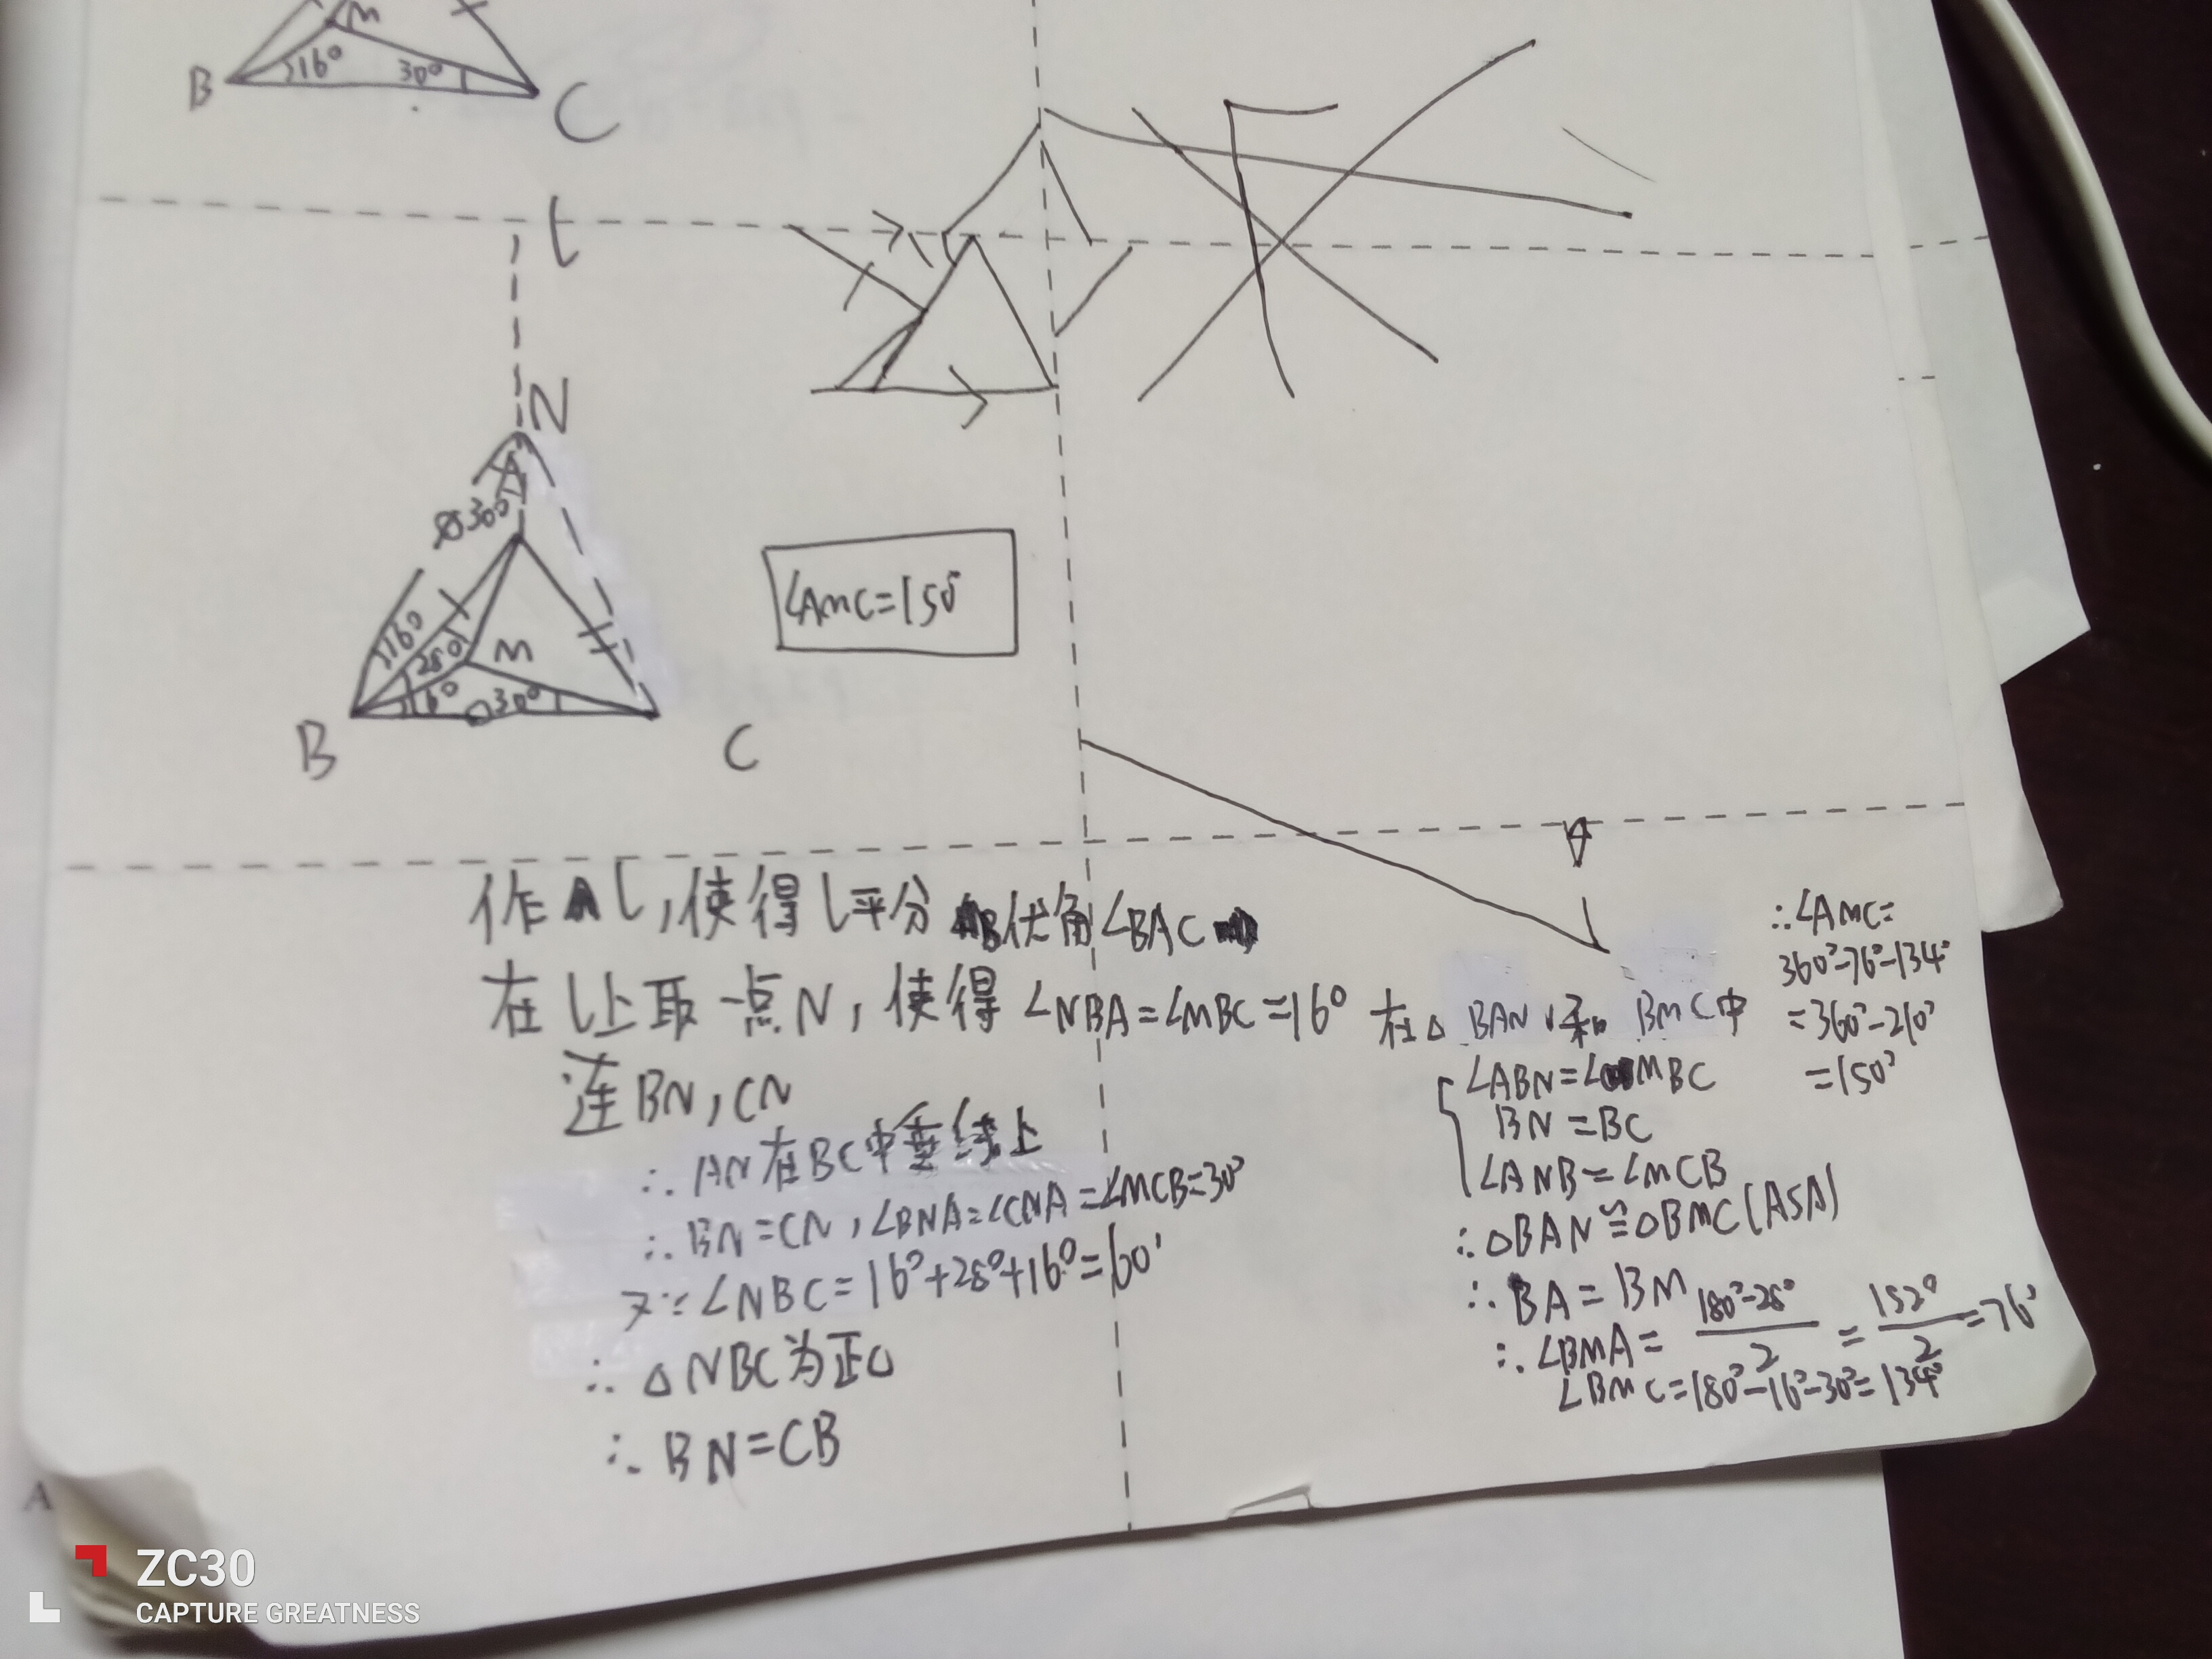 M
16°
30°
B
C
l
N
30°
16°
28°
M
16°
30°
B
C
∠AMC=150°
作l,使得l平分优角∠BAC
在l上取一点N,使得∠NBA=∠MBC=16°
连BN,CN
∴AN在BC中垂线上
∴BN=CN,∠BNA=∠CNA=∠MCB=30°
又∵∠NBC=16°+28°+16°=60°
∴△NBC为正△
∴BN=CB
在△BAN和BMC中
∠ABN=∠MBC
BN=BC
∠ANB=∠MCB
∴△BAN≌△BMC(ASA)
∴BA=BM
∴∠BMA=180°-28°/2=152°/2=76°
∠BMC=180°-16°-30°=134°
∴∠AMC=
360°-76°-134°
=360°-210°
=150°
A
ZC30
CAPTURE GREATNESS